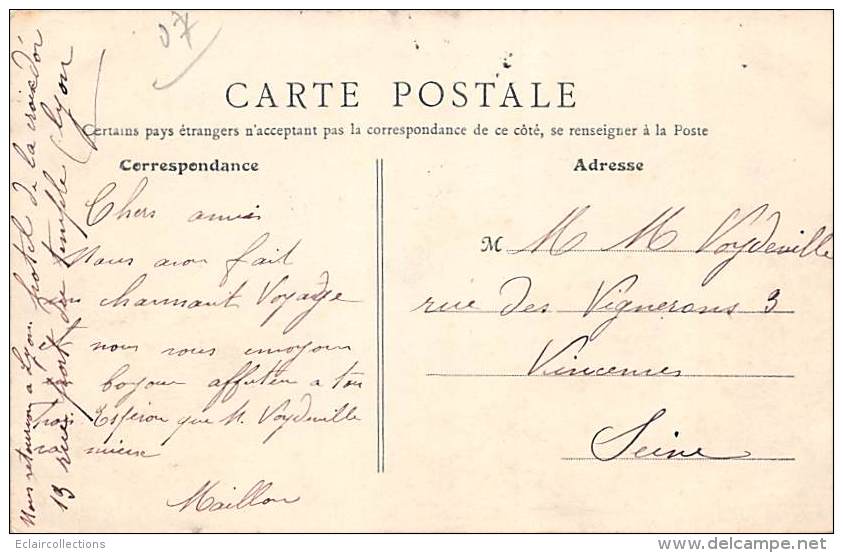 07
CARTE POSTALE
Certains pays étrangers n'acceptant pas la correspondance de ce côté, se renseigner à la Poste
Correspondance
Chers amis
Nous avon fait
un charmant Voyage
et nous vous envoyon
bojour affuteu a tou
Trois Espéron que M. Voydeville
va mieux
Maillon
Nous retournon a Lyon hotel de la croix d'or
13 rue port du temple (Lyon
Adresse
M M M Voydeville
rue des Vignerons 3
Vincennes
Seine
Eclaircollections
delcampe.net